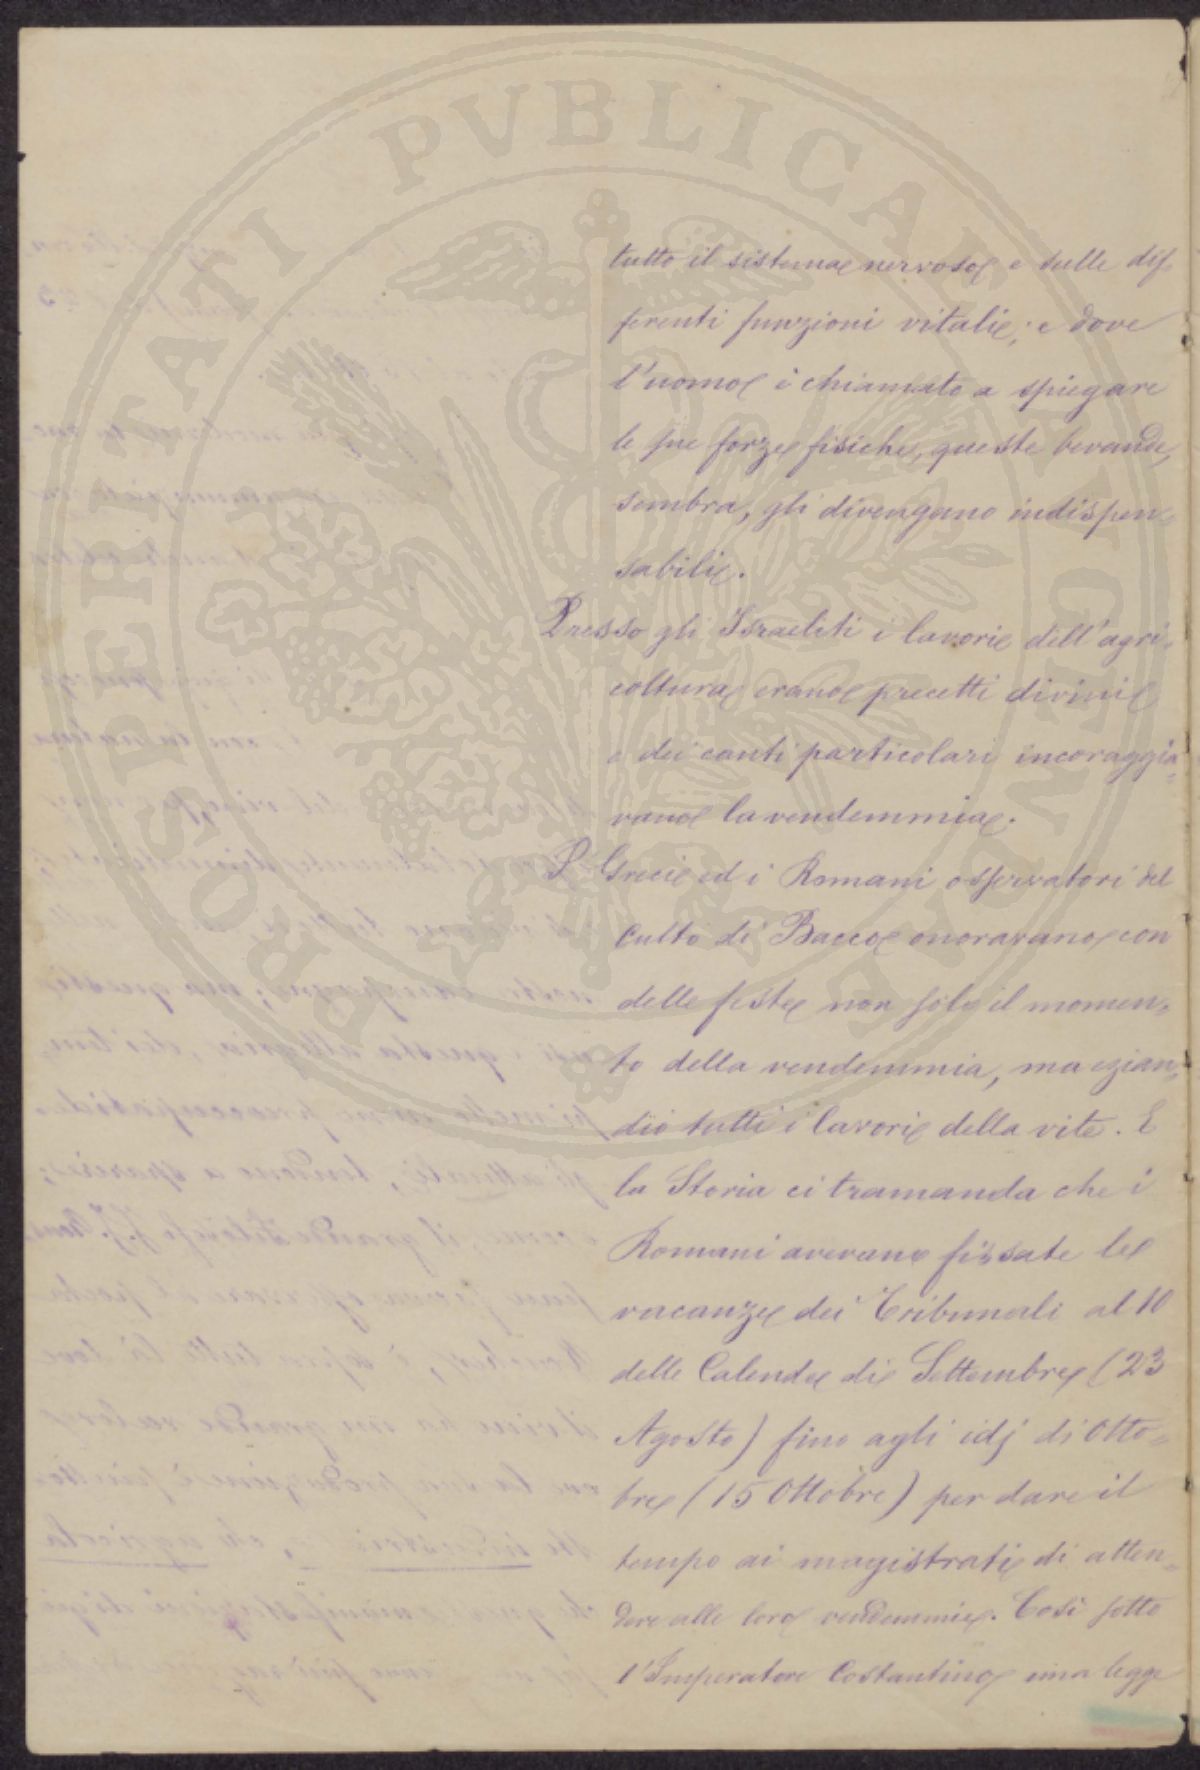 PROSPERITATI PVBLICAE AVGENDAE
tutto il sistema nervoso e sulle dif-
ferenti funzioni vitali; e dove
l'uomo è chiamato a spiegare
le sue forze fisiche, queste bevande,
sembra, gli divengano indispen-
sabili.
Presso gli Israeliti i lavori dell'agri-
coltura erano precetti divini
e dei canti particolari incoraggia-
vano la vendemmia.
I Greci ed i Romani osservatori del
culto di Bacco onoravano con
delle feste non solo il momen-
to della vendemmia, ma ezian-
dio tutti i lavori della vite. E
la Storia ci tramanda che i
Romani avevano fissate le
vacanze dei Tribunali al 10
delle Calende di Settembre (23
Agosto) fino agli idj di Otto-
bre (15 Ottobre) per dare il
tempo ai magistrati di atten-
dere alle loro vendemmie. Così sotto
l'Imperatore Costantino una legge